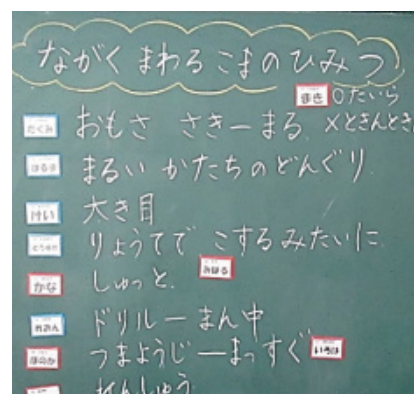 ながく まわる こまの ひみつ
まき ○たいら
たくみ おもさ さきーまる ×ときんとき
まるい かたちのどんぐり
けい 大き目
りょうてで こするみたいに
かな しゅっと みはる
れおん ドリルーまん中
ほのか つまようじーまっすぐ いろは
れんしゅう